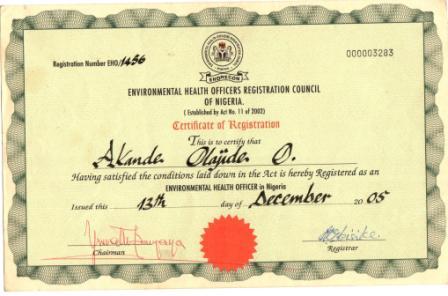 Registration Number EHO/1456
000003283
EHORECON
ENVIRONMENTAL HEALTH OFFICERS REGISTRATION COUNCIL
OF NIGERIA.
( Established by Act No. 11 of 2002)
Certificate of Registration
This is to certify that
Akande Olajide O.
Having satisfied the conditions laid down in the Act is hereby Registered as an
ENVIRONMENTAL HEALTH OFFICER in Nigeria
Issued this 13th day of December 2005
Chairman
Registrar